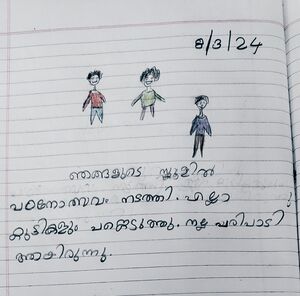 8/3/24
ഞങ്ങളുടെ സ്കൂളിൽ
പഠനോത്സവം നടത്തി. എല്ലാ
കുട്ടികളും പങ്കെടുത്തു. നല്ല പരിപാടി
ആയിരുന്നു.